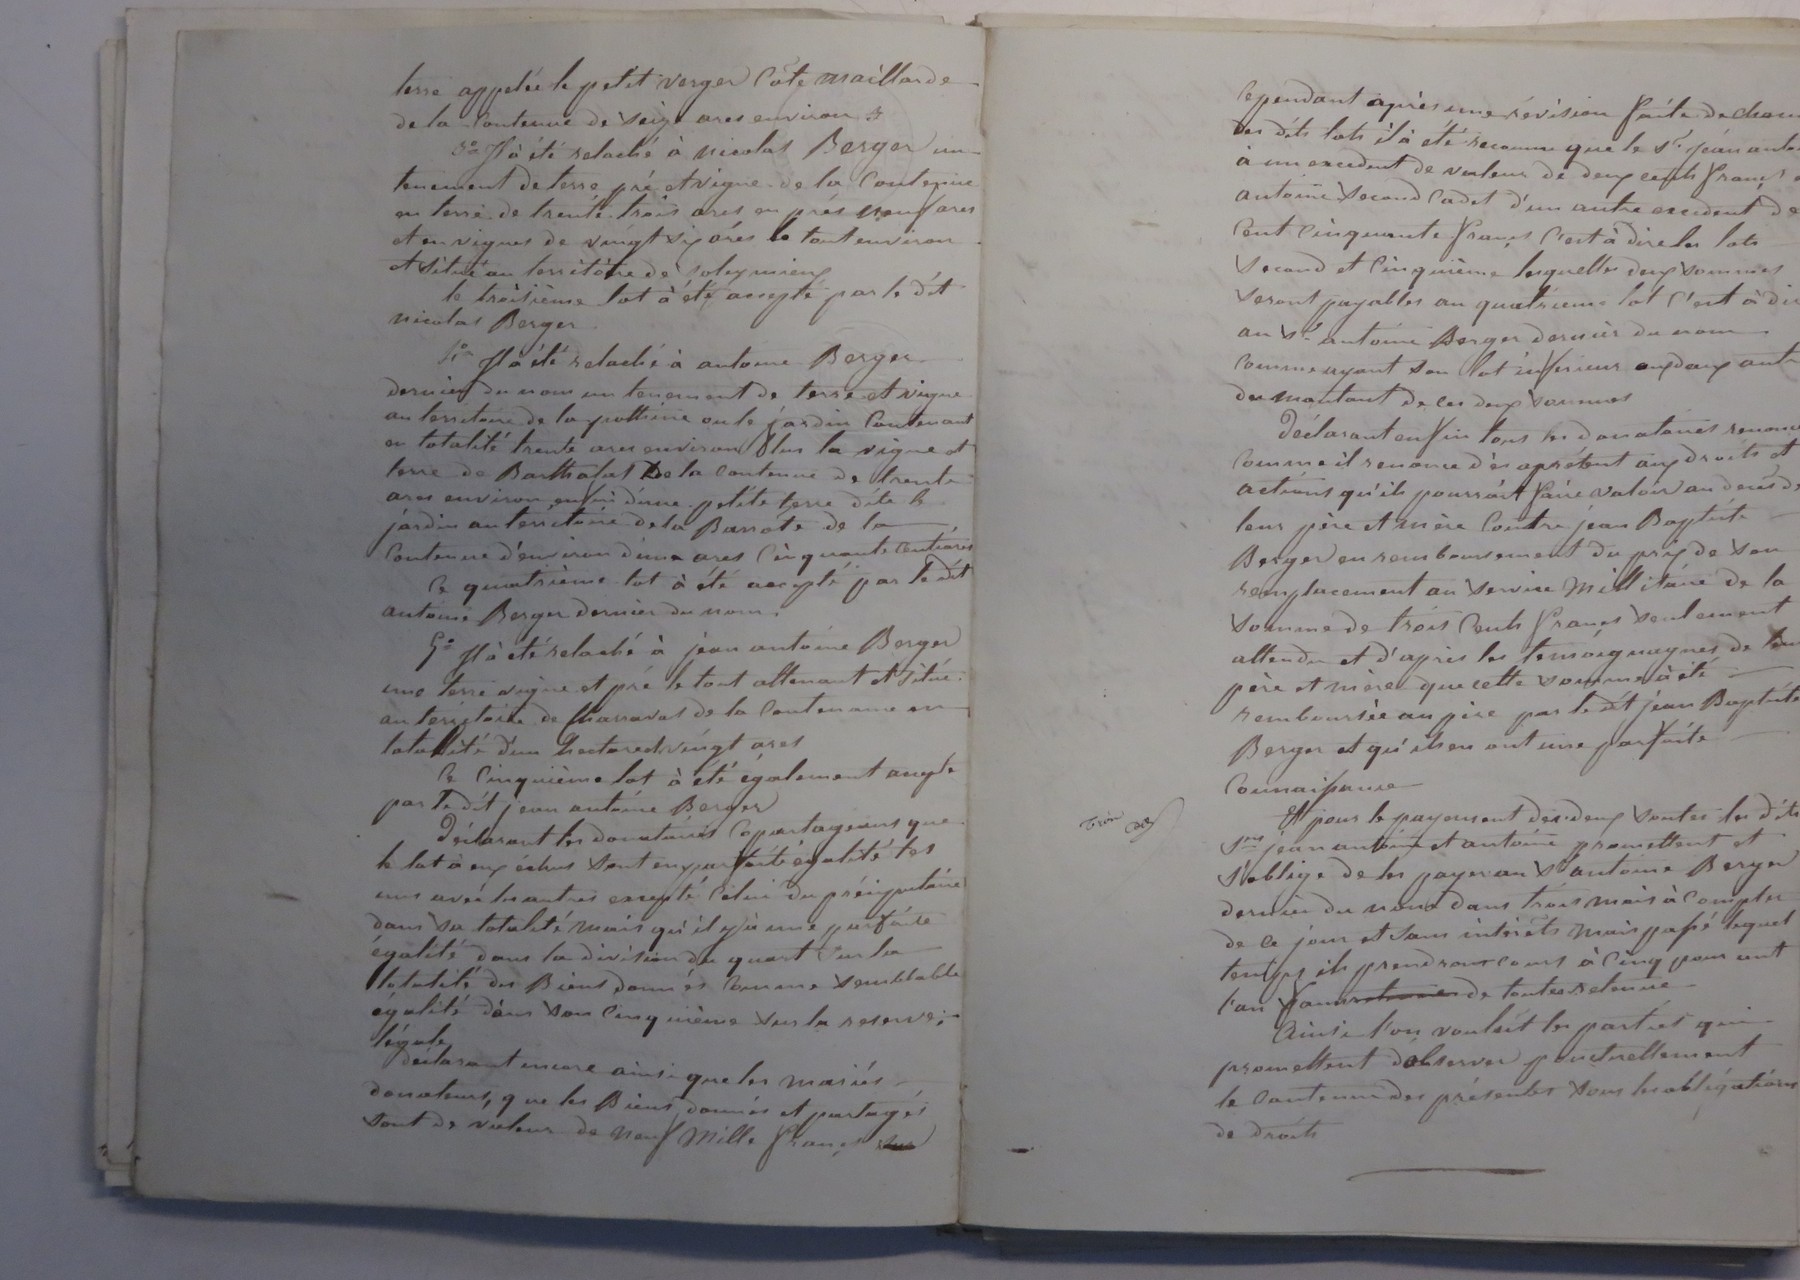 terre appelée le petit verger Côte maillarde
de la Contenue de Seize ares environ
3º Il à été relaché à nicolas Berger un
tenement de terre pré et vigne de la Contenue
en terre de trente trois ares en prés neuf ares
et en vignes de vingt six ares le tout environ
et situé au territoire de Soleymieux
le troisième lot à été accepté par le dit
nicolas Berger
4º Il à été relaché à antoine Berger
dernier du nom un tenement de terre et vigne
au territoire de la ou le jardin Contenant
en totalité trente ares environ Plus la vigne et
terre de Barthalat De la Contenue de trente
ares environ enfin d'une petite terre dite le
jardin au territoire de la Barrote de la
Contenue d'environ d'une ares Cinquante Centiares
Ce quatrième lot à été accepté par le dit
antoine Berger dernier du nom.
5º Il à été relaché à jean antoine Berger
une terre vigne et pré le tout attenant et situé
au territoire de Charravas de la Contenance en
totalité d'un hectare vingt ares
Ce Cinquième lot à été également
par le dit jean antoine Berger
Déclarant les donataires Copartageans que
le lot à eux échus sont en parfaite égalité les
uns avec les autres excepté Celui du préciputaire
dans sa totalité mais qu'il y à une parfaite
égalité dans la division du quart Sur la
totalité des Biens donnés Comme semblable
égalité dans son Cinquième sur la reserve
légale
déclarant encore ainsi que les mariés
donateurs, que les Biens donnés et partagés
sont de valeur de neuf Mille francs
Cependant après une révision faite de
des dits lots il à été reconnu que le Sr jean
à un excedent de valeur de deux cents francs
antoine Second Cadet d'un autre excedent de
Cent Cinquante francs C'est à dire les lots
Second et Cinquième lesquelles deux sommes
seront payables au quatrième lot C'est à
au Sr antoine Berger dernier du nom
Comme ayant son lot inférieur aux deux
du montant de ces deux sommes
Déclarant enfin tous les donataires
Comme il renonce dès àprésent aux droits et
actions qu'ils pourrait faire valoir au decès de
leur père et mère Contre jean Baptiste
Berger en remboursement du prix de son
remplacement au service Millitaire de la
somme de trois Cents francs seulement
attendu et d'après les temoignagnes de
père et mère que cette somme à été
remboursée au père par le dit jean Baptiste
Berger et qu'ils en ont une parfaite
Connaissance
Et pour le payement des deux soutes les dits
Srs jean antoine et antoine promettent et
s'oblige de les payer au Sr antoine Berger
dernier du nom dans trois mois à Compter
de ce jour et sans intérèts mais passé lequel
temps ils prendront cours à Cinq pour cent
l'an franc de toutes retenue
Ainsi l'on voulut les parties qui
promettent d'observer ponctuellement
le Contenu des présentes sous les obligations
de droits